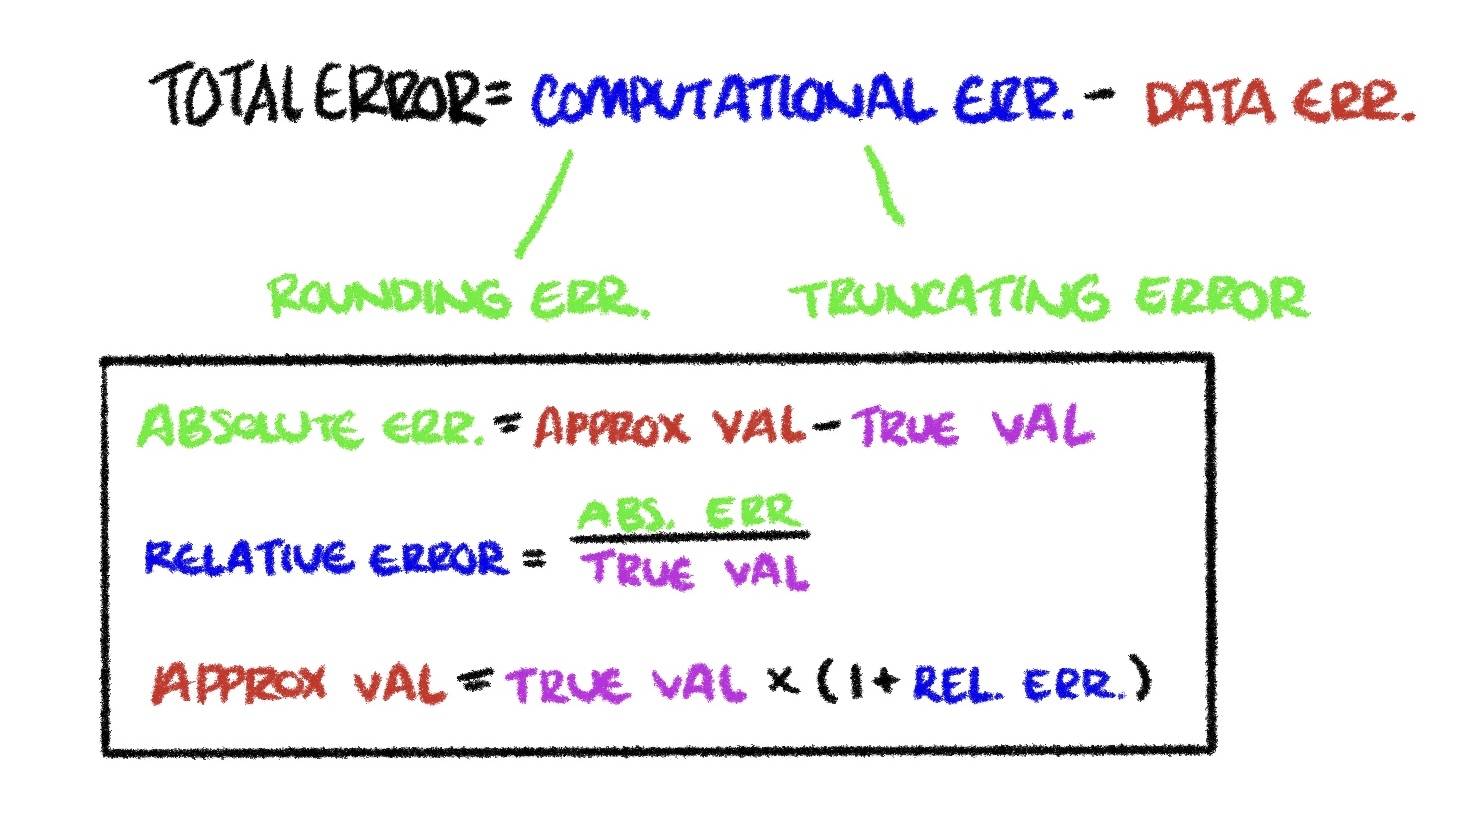 TOTAL ERROR = COMPUTATIONAL ERR. - DATA ERR.
ROUNDING ERR. TRUNCATING ERROR
ABSOLUTE ERR. = APPROX VAL - TRUE VAL
RELATIVE ERROR = ABS. ERR
TRUE VAL
APPROX VAL = TRUE VAL × (1 + REL. ERR.)